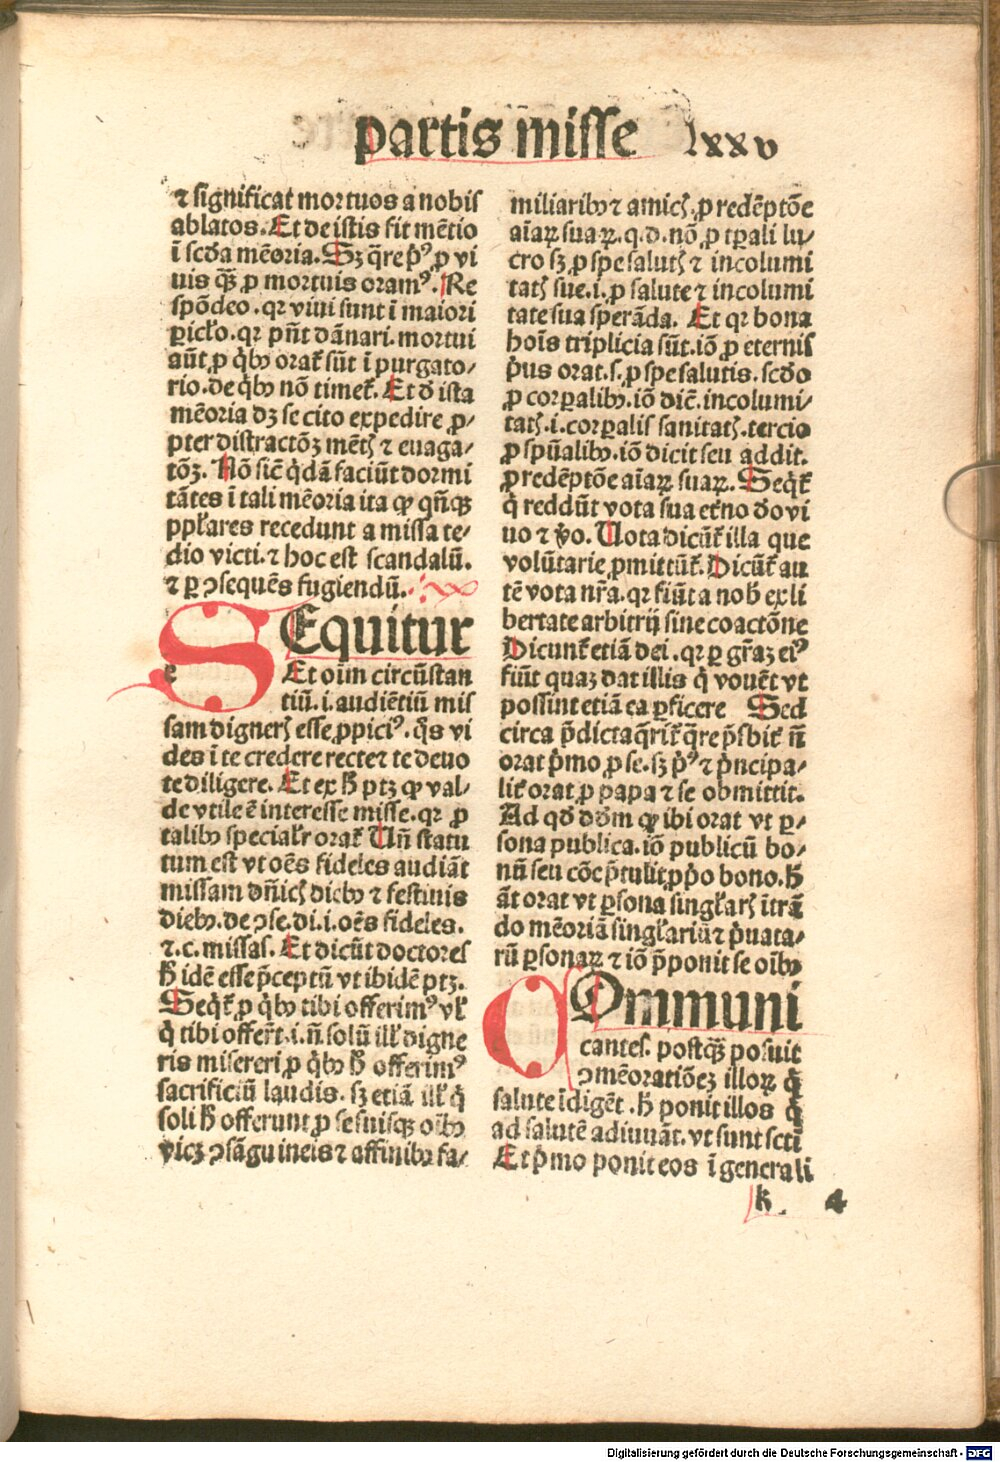 partis misse lxxv
⁊ significat mortuos a nobis
ablatos. Et de istis fit mētio
ī scḋa mēoria. Sꝫ q̄re pꝰ ꝓ vi
uis qꝫ̄ ꝓ mortuis oramꝰ. Re
spōdeo. qr viui sunt ī maiori
ꝑicl̓o. qr pn̄t dānari. mortui
aūt ꝓ qͥbꝰ orat̉ sūt ī purgato/
rio. de qͥbꝰ nō timet̉. Et đ ista
mēoria dꝫ se cito expedire ꝓ/
pter distractōꝫ mēt̉ ⁊ euaga/
tōꝫ. Nō sic̄ qͥdā faciūt dormi
tātes ī tali mēoria ita ꝙ qn̄qꝫ
ppl̓ares recedunt a missa te/
dio victi. ⁊ hoc est scandalū.
⁊ ꝑ ꝯsequēs fugiendū.
SEquitur
Et oīm circūstan
tiū. i. audiētiū mis
sam digneris esse ꝓpiciꝰ. qͦꝝ vi
des ī te credere recte ⁊ te deuo
te diligere. Et ex hͦ ptꝫ ꝙ val/
de vtile ē interesse misse. qr ꝓ
talibꝰ specialr̓ orat̉ Un̄ statu
tum est vt oēs fideles audiāt
missam dn̄icis diebꝰ ⁊ festiuis
diebꝰ. de ꝯse. di. i. oēs fideles.
⁊. c. missas. Et dicūt doctores
hͦ idē esse p̄ceptū vt ibidē ptꝫ.
Seqͥt̉ ꝓ qͥbꝰ tibi offerimꝰ vl̓
qͥ tibi offerūt. i. n̄ solū ill̓ digne
ris misereri ꝓ qͥbꝰ hͦ offerimꝰ
sacrificiū laudis. sꝫ etiā ill̓ qͥ
soli hͦ offerunt ꝓ se suisqꝫ oībꝰ
vicꝫ ꝯsāguineis ⁊ affinibꝰ fa/
miliaribꝰ ⁊ amicis. ꝓ redēptōe
aīaꝝ suaꝝ. q. d. nō ꝓ tꝑali lu/
cro sꝫ ꝓ spe salutis ⁊ incolumi
tatis sue. i. ꝓ salute ⁊ incolumi
tate sua sperāda. Et qr bona
hoīs triplicia sūt. iō ꝓ eternis
pͥus orat. s. ꝓ spe salutis. scḋo
ꝓ corꝑalibꝰ. iō dic̄. incolumi/
tatis. i. corꝑalis sanitatis. tercio
ꝓ spūalibꝰ. iō dicit seu addit.
ꝓ redēptōe aīaꝝ suaꝝ. Seqͥt̉
qͥ reddūt vota sua et̓no đo vi
uo ⁊ vͦo. Uota dicūt̉ illa que
volūtarie ꝓmittūt̉. Dicūt̉ au
tē vota nr̄a. qr fiūt a nob̄ ex li
bertate arbitrij sine coactōne
Dicunt̉ etiā dei. qr ꝑ gr̄aꝫ eiꝰ
fiūt quaꝫ dat illis qͥ vouēt vt
possint etiā ea ꝑficere Sed
circa p̄dicta qͣrit̉ qͣre p̄sbit̉ n̄
orat pͥmo ꝓ se. sꝫ pͥꝰ ⁊ pͥncipa/
lit̉ orat ꝓ papa ⁊ se obmittit.
Ad qḋ dḋm ꝙ ibi orat vt ꝑ/
sona publica. iō publicū bo/
nū seu cōe p̄tulit ꝓpͥo bono. hͦ
āt orat vt ꝑsona singl̓aris ītrā
do mēoriā singl̓ariū ⁊ pͥuata/
rū ꝑsonaꝝ ⁊ iō p̄ponit se oībꝰ
COmmuni
cantes. postqꝫ̄ posuit
ꝯmēoratiōeꝫ illoꝝ qͥ
salute īdigēt. hͦ ponit illos qͥ
ad salutē adiuuāt. vt sunt scti
Et pͥmo ponit eos ī generali
k 4
Digitalisierung gefördert durch die Deutsche Forschungsgemeinschaft - DFG